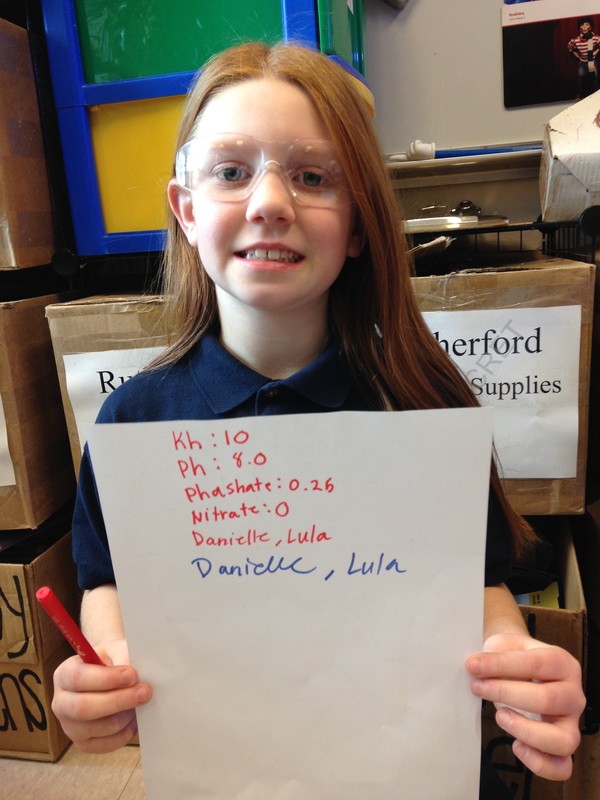 Ru
herford
Supplies
Kh : 10
Ph : 8.0
Phashate : 0.26
Nitrate : 0
Danielle, Lula
Danielle, Lula